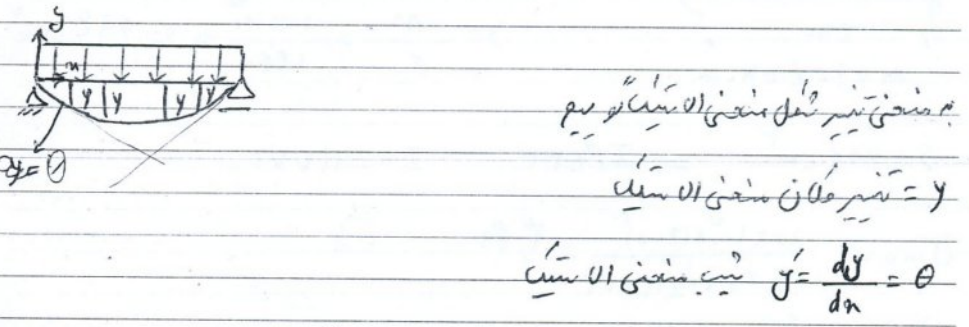 y
x
y y y y
y' = θ
به منحنی تغییر شکل منحنی الاستیک گوییم
y = تغییر مکان منحنی الاستیک
y' = dy/dx = θ شیب منحنی الاستیک